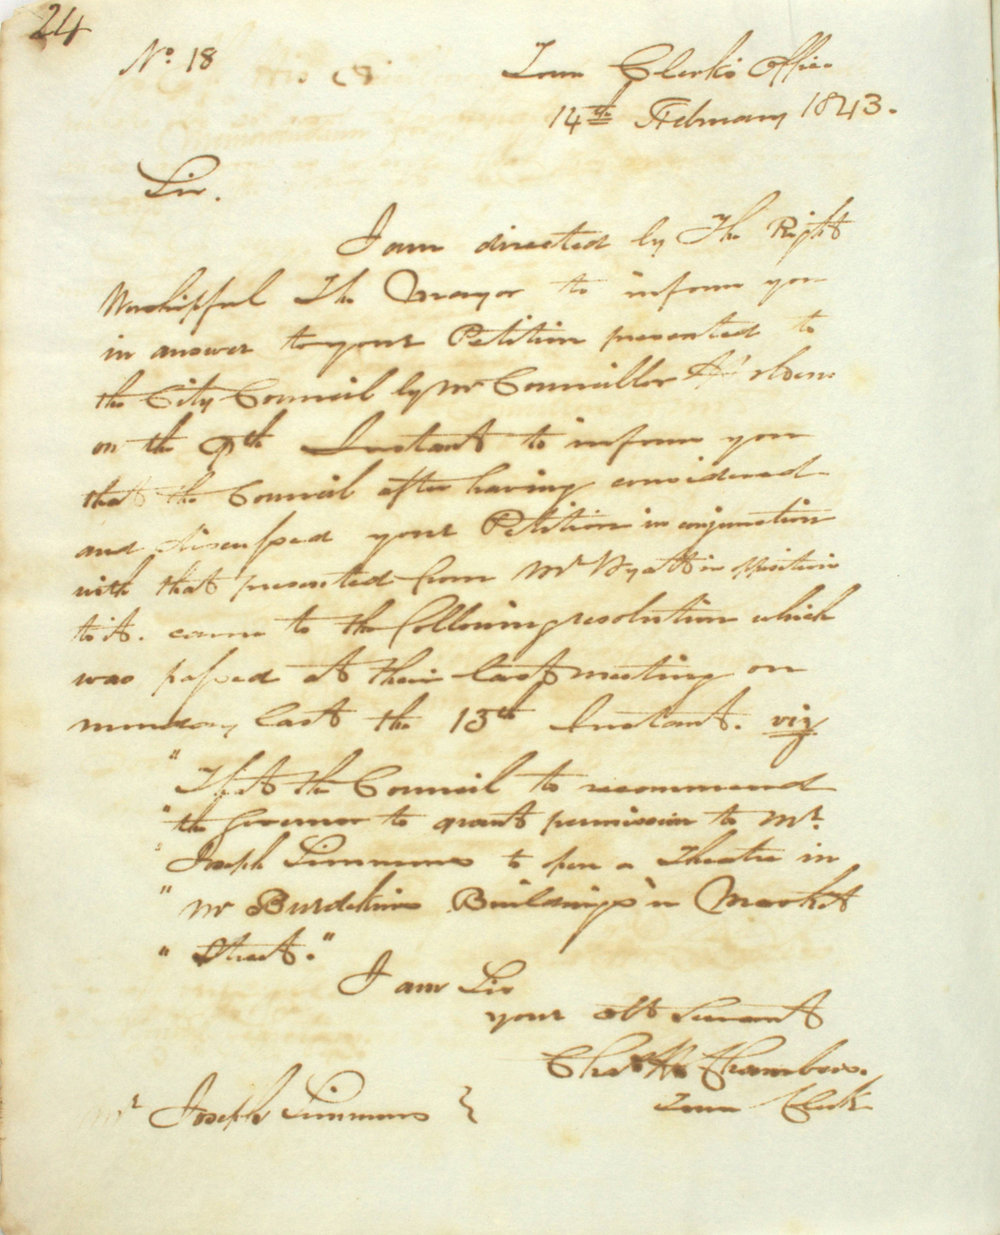 24
No. 18
Town Clerk's Office
14th February 1843.
Sir.
I am directed by The Right
Worshipful The Mayor to inform you
in answer to your Petition presented to
the City Council by Mr Councillor
on the 9th Instant to inform you
that the Council after having considered
and discussed your Petition in conjunction
with that presented from Mr Wyatt in opposition
to it. came to the following resolution which
was passed at their last meeting on
monday last the 13th Instant. viz
"That the Council to recommend
"the Governor to grant permission to Mr.
"Joseph Simmons to open a Theatre in
"Mr Burdekins Buildings in Market
"Street."
I am Sir
your obt Servant
Chas H Chambers.
Town Clerk
Mr Joseph Simmons }